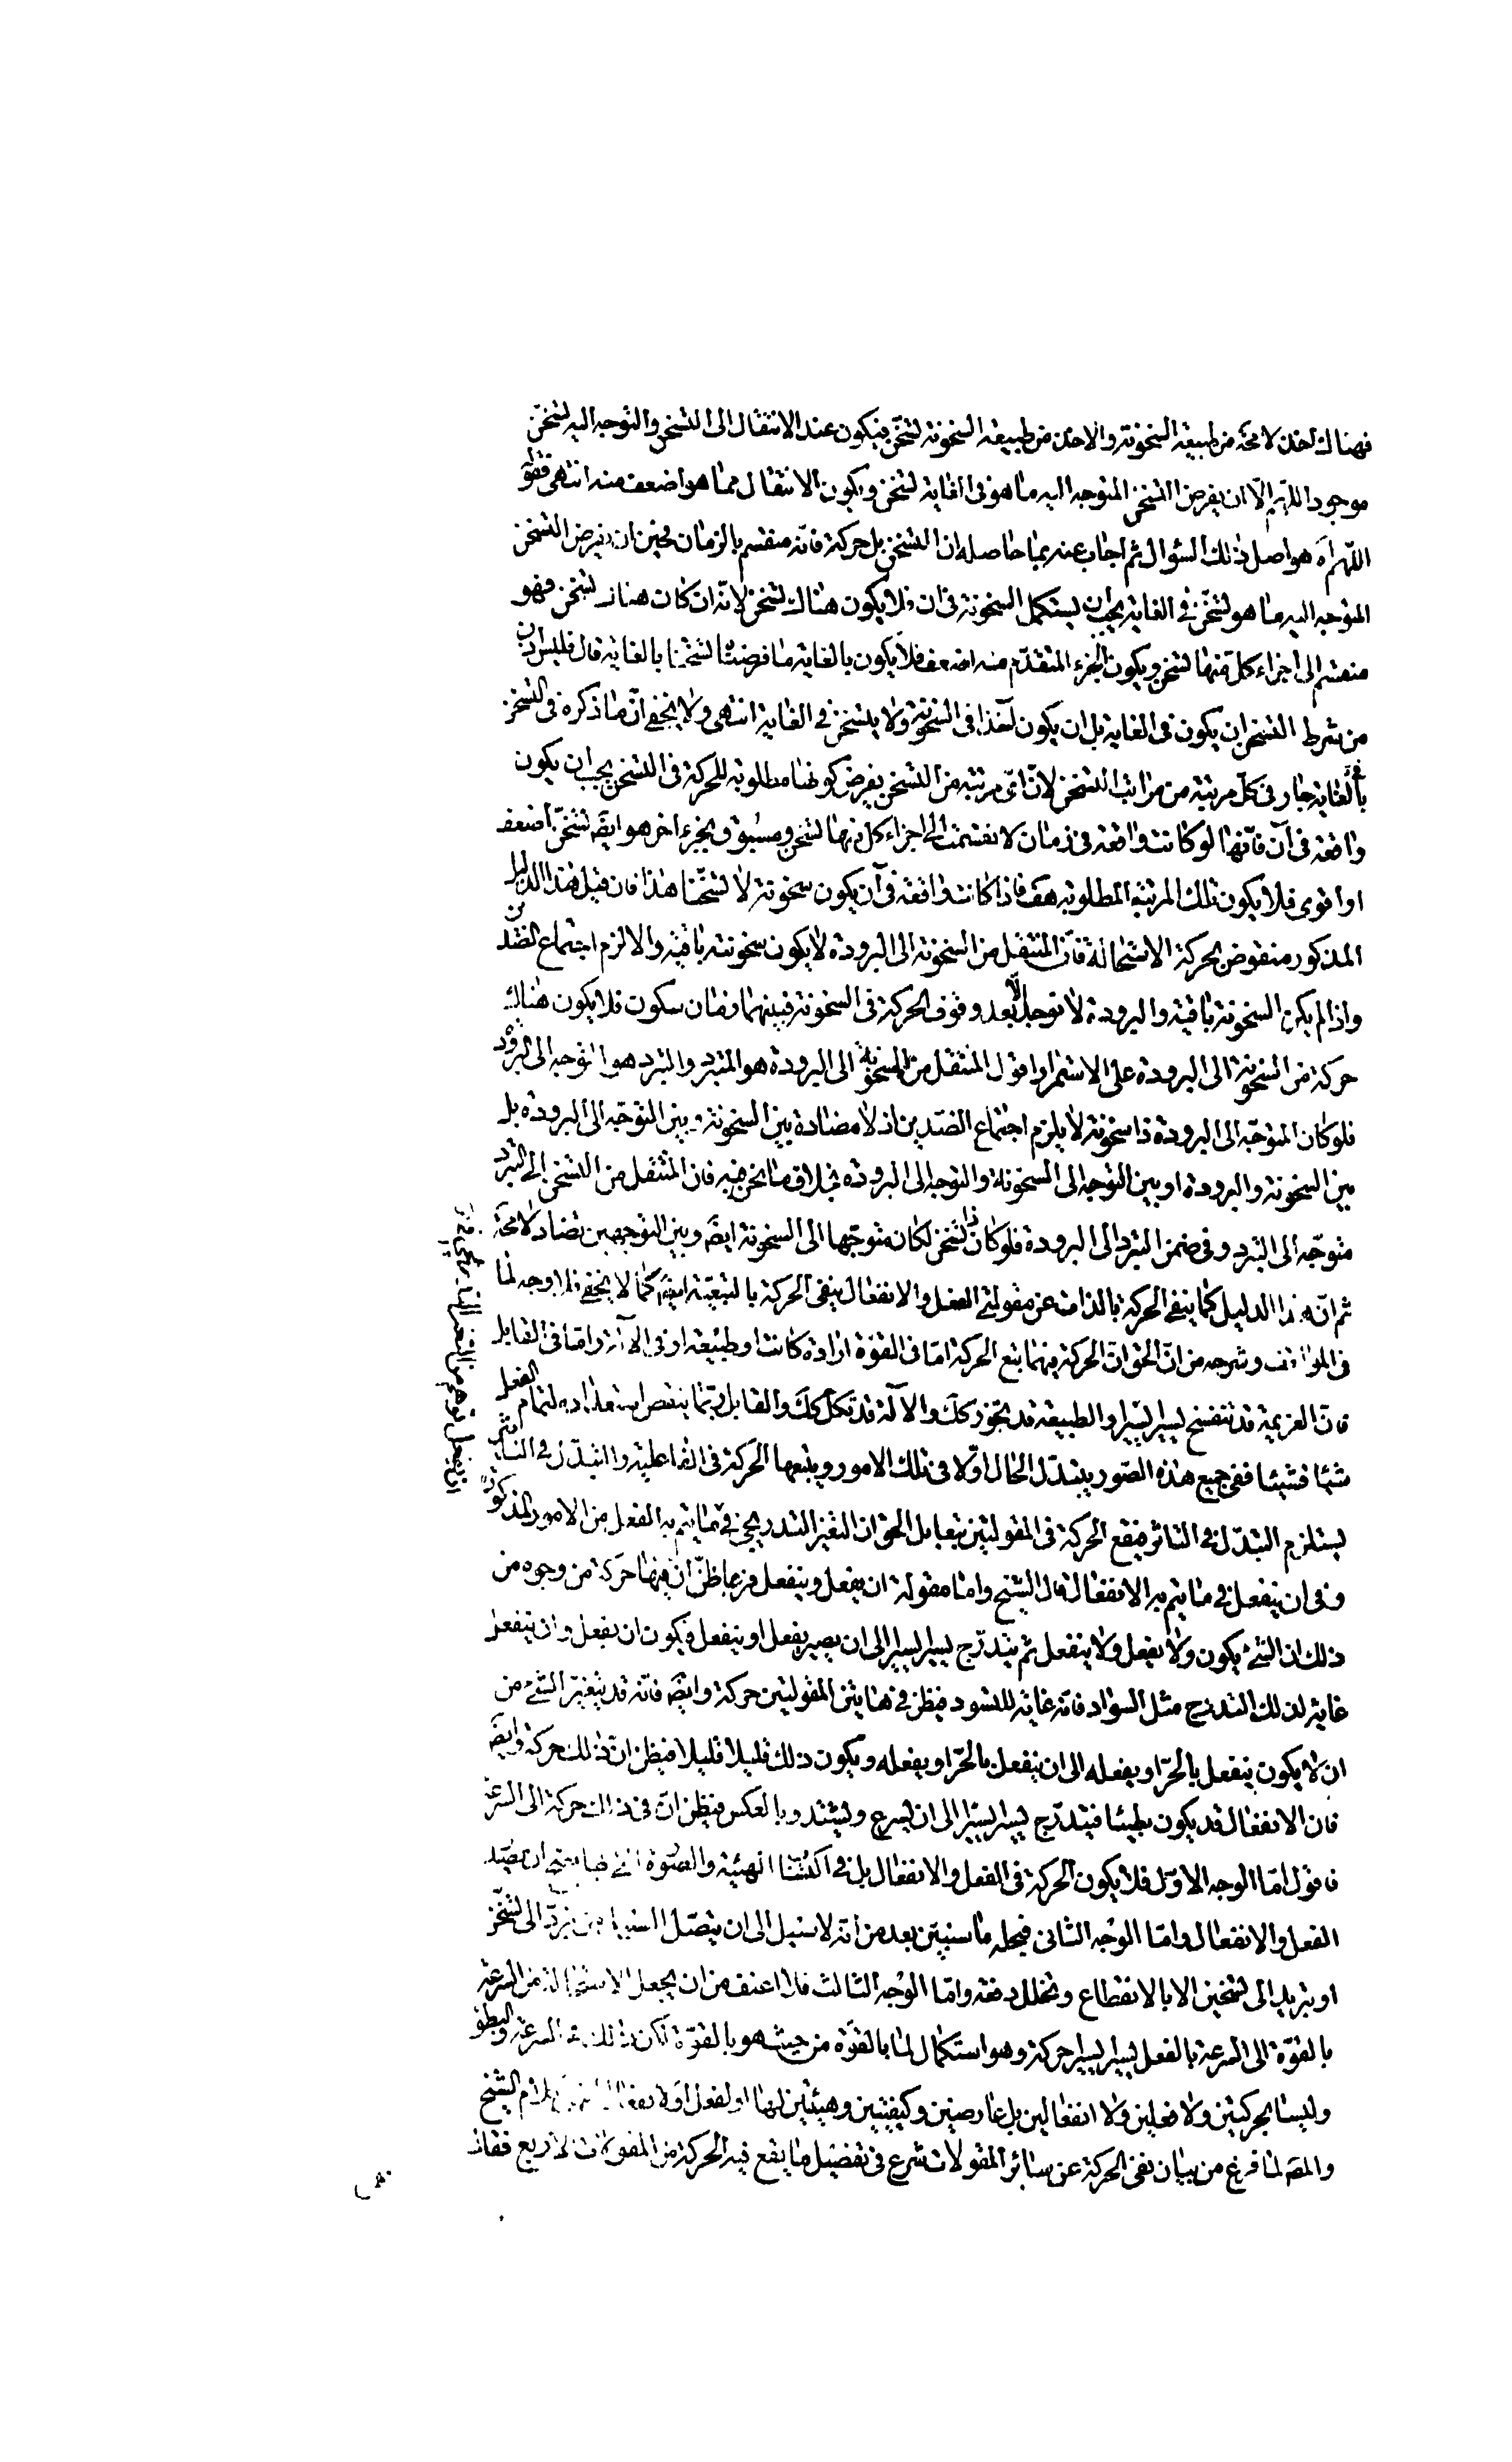 فهناك اخذ لا محة من طبيعة السخونة والاخذ من طبيعة السخونة تسخّن فيكون عند الانتقال الى التسخن والتوجه اليه تسخّن
موجود اللهم الّا ان يفرض التسخن المتوجه اليه ما هو فى الغاية تسخن ويكون الانتقال مما هو اضعف منه انتهى فقوله
اللّهم اه هو اصل ذلك السّؤال ثم اجاب عنه بما حاصله ان التسخن بل حركة فانه منقسم بالزمان فحين ان يفرض التسخن
المتوجه اليه ما هو تسخّن فى الغاية يجب ان يستكمل السخونة فى ان فلا يكون هناك تسخن لانّه ان كان هناك تسخن فهو
منقسم الى اجزاء كل منها تسخن ويكون الجزء المتقدّم منه اضعف فلا يكون بالغاية ما فرضناه تسخنا بالغاية قال فليس اذن
من شرط التسخن ان يكون فى الغاية بل ان يكون اخذا فى السخونة ولا يتسخن فى الغاية انتهى ولا يخفى انّ ما ذكره فى التسخن
بالغاية جار فى كلّ مرتبة من مراتب التسخن لانّ اىّ مرتبة من التسخن يفرض كونها مطلوبة للحركة فى التسخن يجب ان يكون
واقعة فى آن فانّها لو كانت واقعة فى زمان لانقسمت الى اجزاء كل منها تسخن ومسبوق بجزء اخر هو ايضَ تسخّن اضعف
او اقوى فلا يكون تلك المرتبة المطلوبة هف فاذا كانت واقعة فى آن يكون سخونة لا تسخّنا هذا فان قيل هذا الدليل
المذكور منقوض بحركة الاستحالة فانّ المنتقل من السخونة الى البرودة لا يكون سخونته باقية والا لزم اجتماع الضدين
واذا لم يكن السخونة باقية والبرودة لا توجد الّا بعد وقوف الحركة فى السخونة فبينهما زمان سكون فلا يكون هناك
حركة من السخونة الى البرودة على الاستمرار اقول المنتقل من السخونة الى البرودة هو المتبرد والتبرد هو التوجه الى البرودة
فلو كان المتوجّه الى البرودة ذا سخونة لا يلزم اجتماع الضدّين اذ لا مضادة بين السخونة وبين التوجّه الى البرودة بل
بين السخونة والبرودة او بين التوجه الى السخونة والتوجه الى البرودة بخلاف ما نحن فيه فان المنتقل من التسخن الى التبرد
متوجّه الى التبرد وفى ضمن التبرد الى البرودة فلو كان ذا تسخن لكان متوجّها الى السخونة ايضَ وبين التوجهين تضاد لا محة
ثم انّ هذا الدليل كما ينفى الحركة بالذات عن مقولتى الفعل والانفعال ينفى الحركة بالتبعيّة ايضَ كما لا يخفى فلا وجه لما
فى المواقف وشرحه من انّ الحق انّ الحركة فيهما تتبع الحركة امّا فى القوّة ارادة كانت او طبيعة او فى الآلة وامّا فى القابل
فانّ العزيمة قد تنفسخ يسيرا يسيرا والطبيعة قد تخور كك والآلة قد تكل كك والقابل ربّما ينقص استعداده لتمام الفعل
شيئا فشيئا ففى جميع هذه الصّور يتبدّل الحال اوّلا فى تلك الامور ويتبعها الحركة فى الفاعلية والتبدّل فى التاثير
يستلزم التبدّل فى التاثر فيقع الحركة فى المقولتين تبعا بل الحق ان التغيّر التدريجى فى ما يتم به الفعل من الامور المذكورة
وفى ان ينفعل فى ما يتم به الانفعال قال الشيخ واما مقولة ان يفعل وينفعل فربما ظنّ انّ فيها حركة من وجوه من
ذلك ان الشئ يكون ولا يفعل ولا ينفعل ثم يتدرّج يسيرا يسيرا الى ان يصير يفعل او ينفعل فيكون ان يفعل وان ينفعل
غاية لذلك التدرج مثل السّواد فانه غاية للتسود فيظن فى هاتين المقولتين حركة وايضَ فانّه قد يتغيّر الشئ من
ان لا يكون ينفعل بالحرّ او يفعله الى ان ينفعل بالحرّ او يفعله ويكون ذلك قليلا قليلا فيظن انّ ذلك حركة وايضَ
فان الانفعال قد يكون بطيئا فيتدرّج يسيرا يسيرا الى ان يسرع ويشتد وبالعكس فيظن انّ فى ذلك حركة الى السرعة
فاقول امّا الوجه الاوّل فلا يكون الحركة فى الفعل والانفعال بل فى اكتساب الهيئة والصّورة التى بها
الفعل والانفعال وامّا الوجه الثانى فيحله ما سنبيّن بعد من انّه لا سبيل الى ان يتّصل الى تسخّن
او تبريد الى تسخين الا بالانقطاع وتخلل دفعة وامّا الوجه الثالث فلا اعنف من ان يجعل الاستحالة من السرعة
بالقوّة الى السرعة بالفعل يسيرا يسيرا حركة وهو استكمال لما بالقوة من حيث هو بالقوّة لكن السرعة والبطؤ
وليستا بحركتين ولا فعلين ولا انفعالين بل عارضين وكيفيتين وهيئتين لهما او لفعل او لانفعال كلام الشيخ
والمصَ لما فرغ من بيان نفى الحركة عن سائر المقولات شرع فى تفصيل ما يقع فيه الحركة من المقولات الاربع فقال